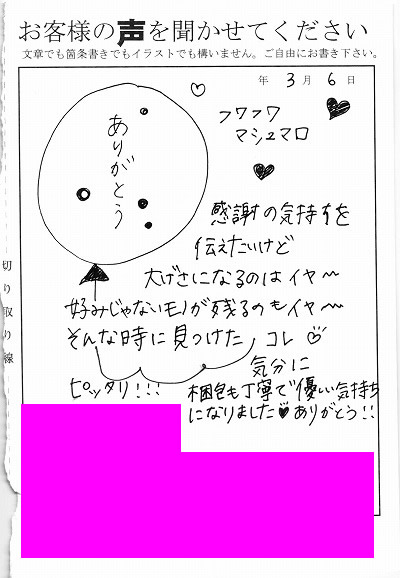 お客様の声を聞かせてください
文章でも箇条書きでもイラストでも構いません。ご自由にお書き下さい。
年 3月 6日
ありがとう
フワフワ
マシュマロ
感謝の気持ちを
伝えたいけど
大げさになるのはイヤ〜
好みじゃないモノが残るのもイヤ〜
そんな時に見つけた コレ♡
気分に
ピッタリ!!!
梱包も丁寧で優しい気持ち
になりました♥ありがとう!!
切り取り線